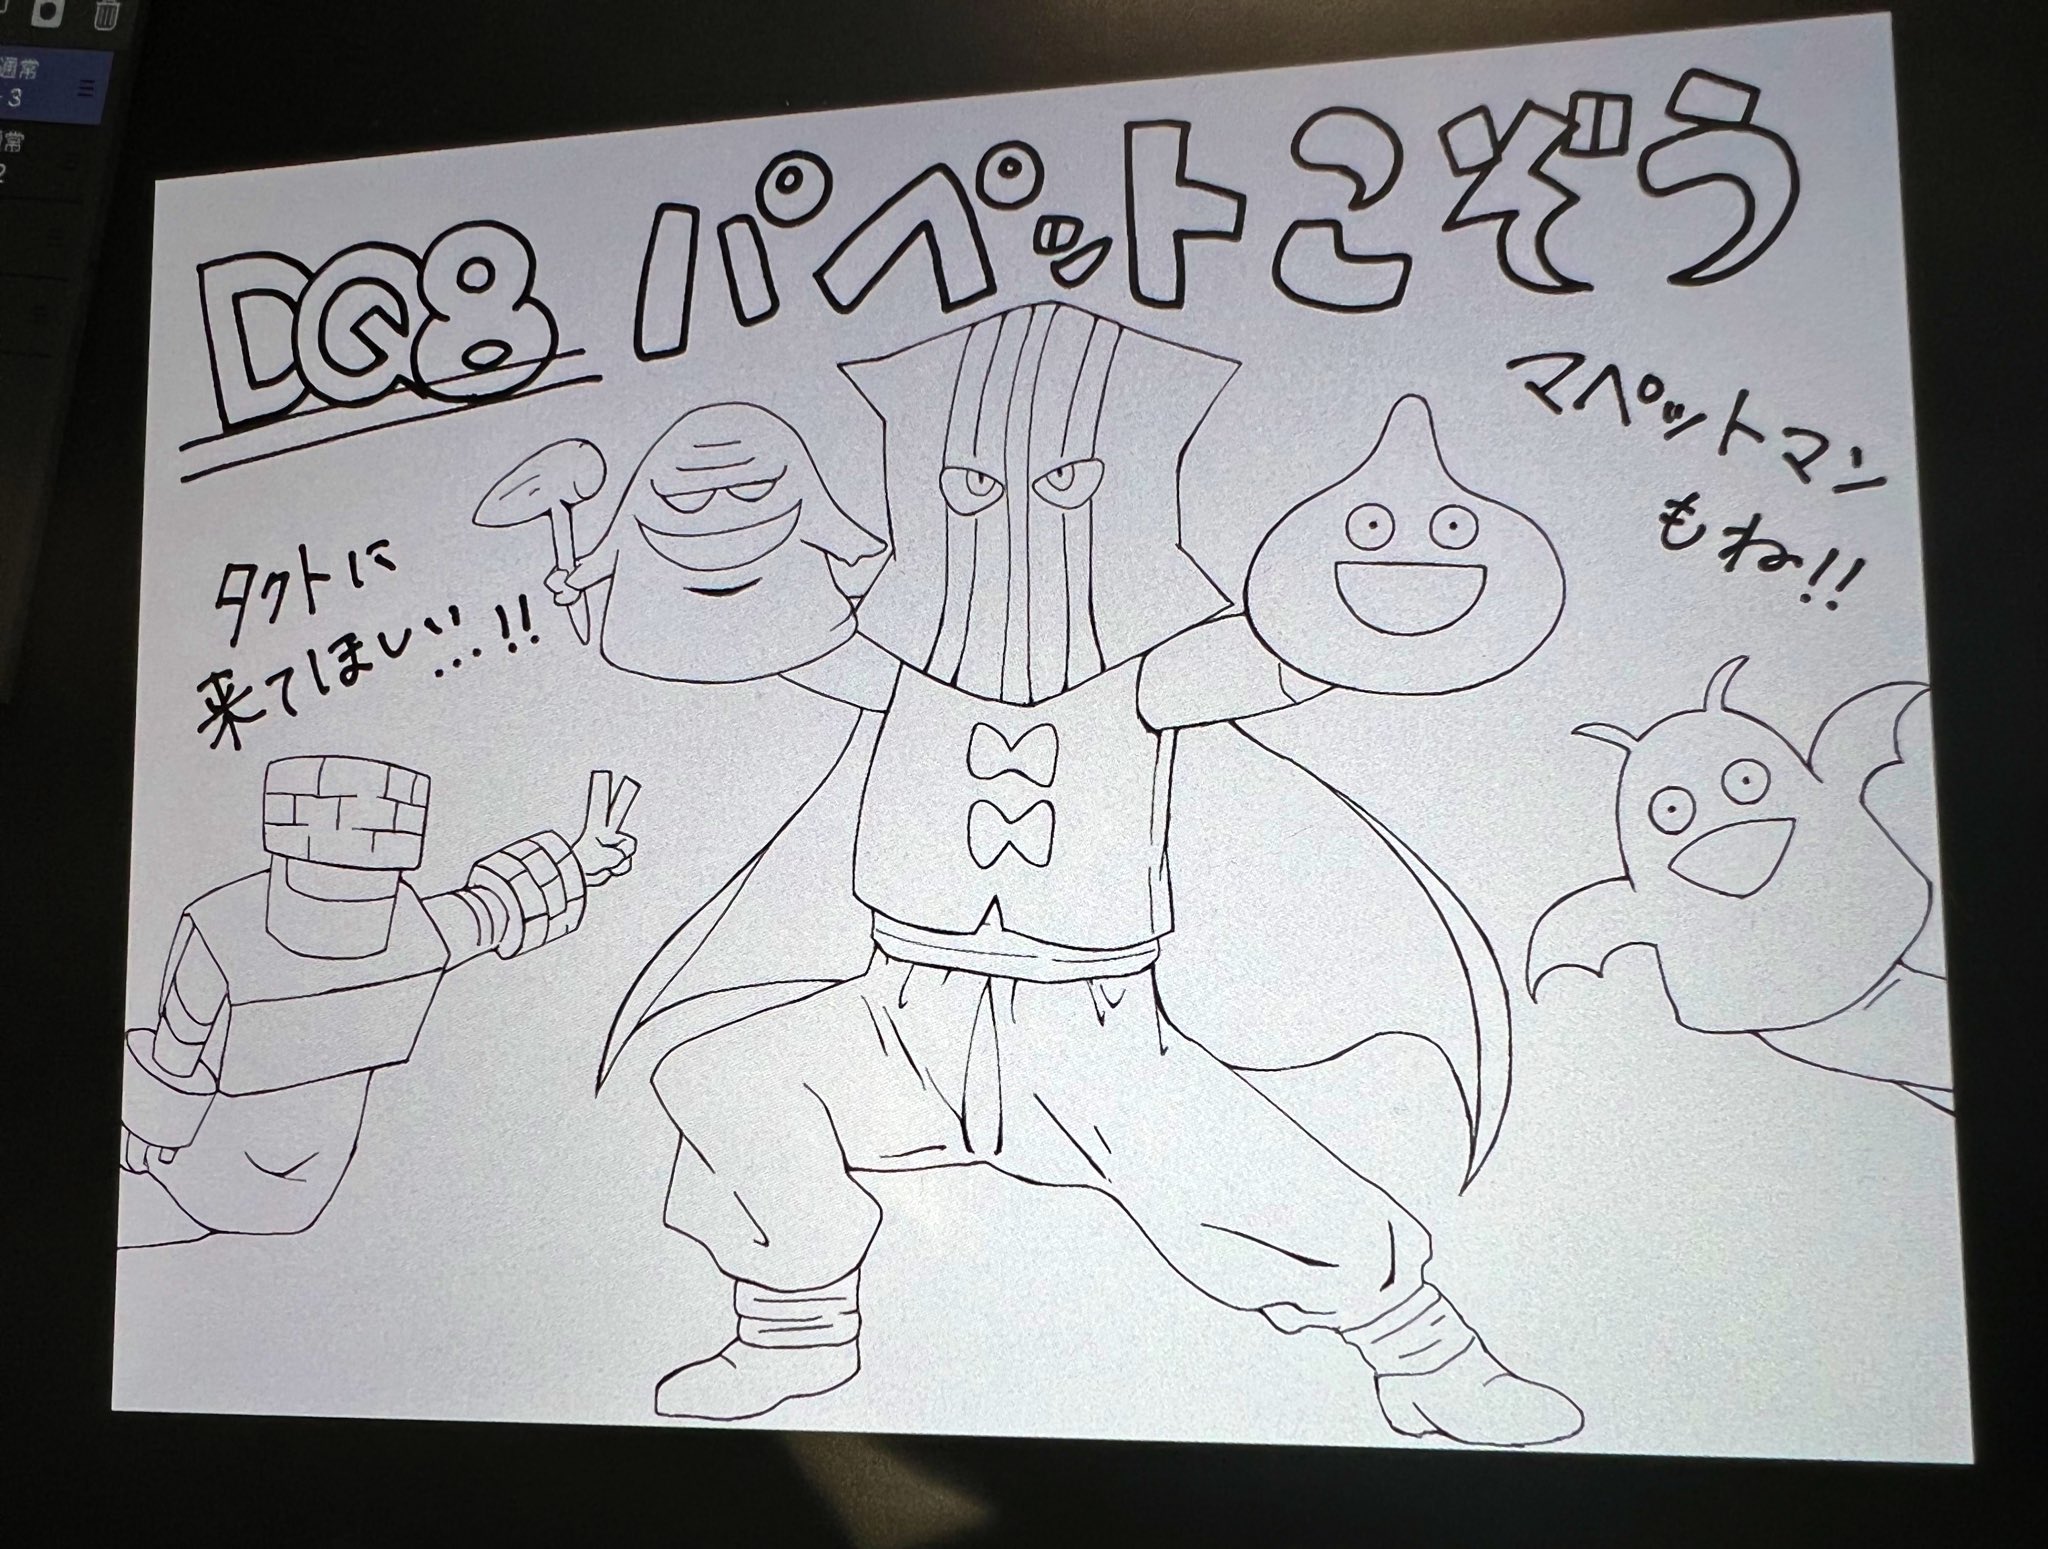 通常
3
常
2
DQ8 パペットこぞう
マペットマン
もね!!
タクトに
来てほしい…!!